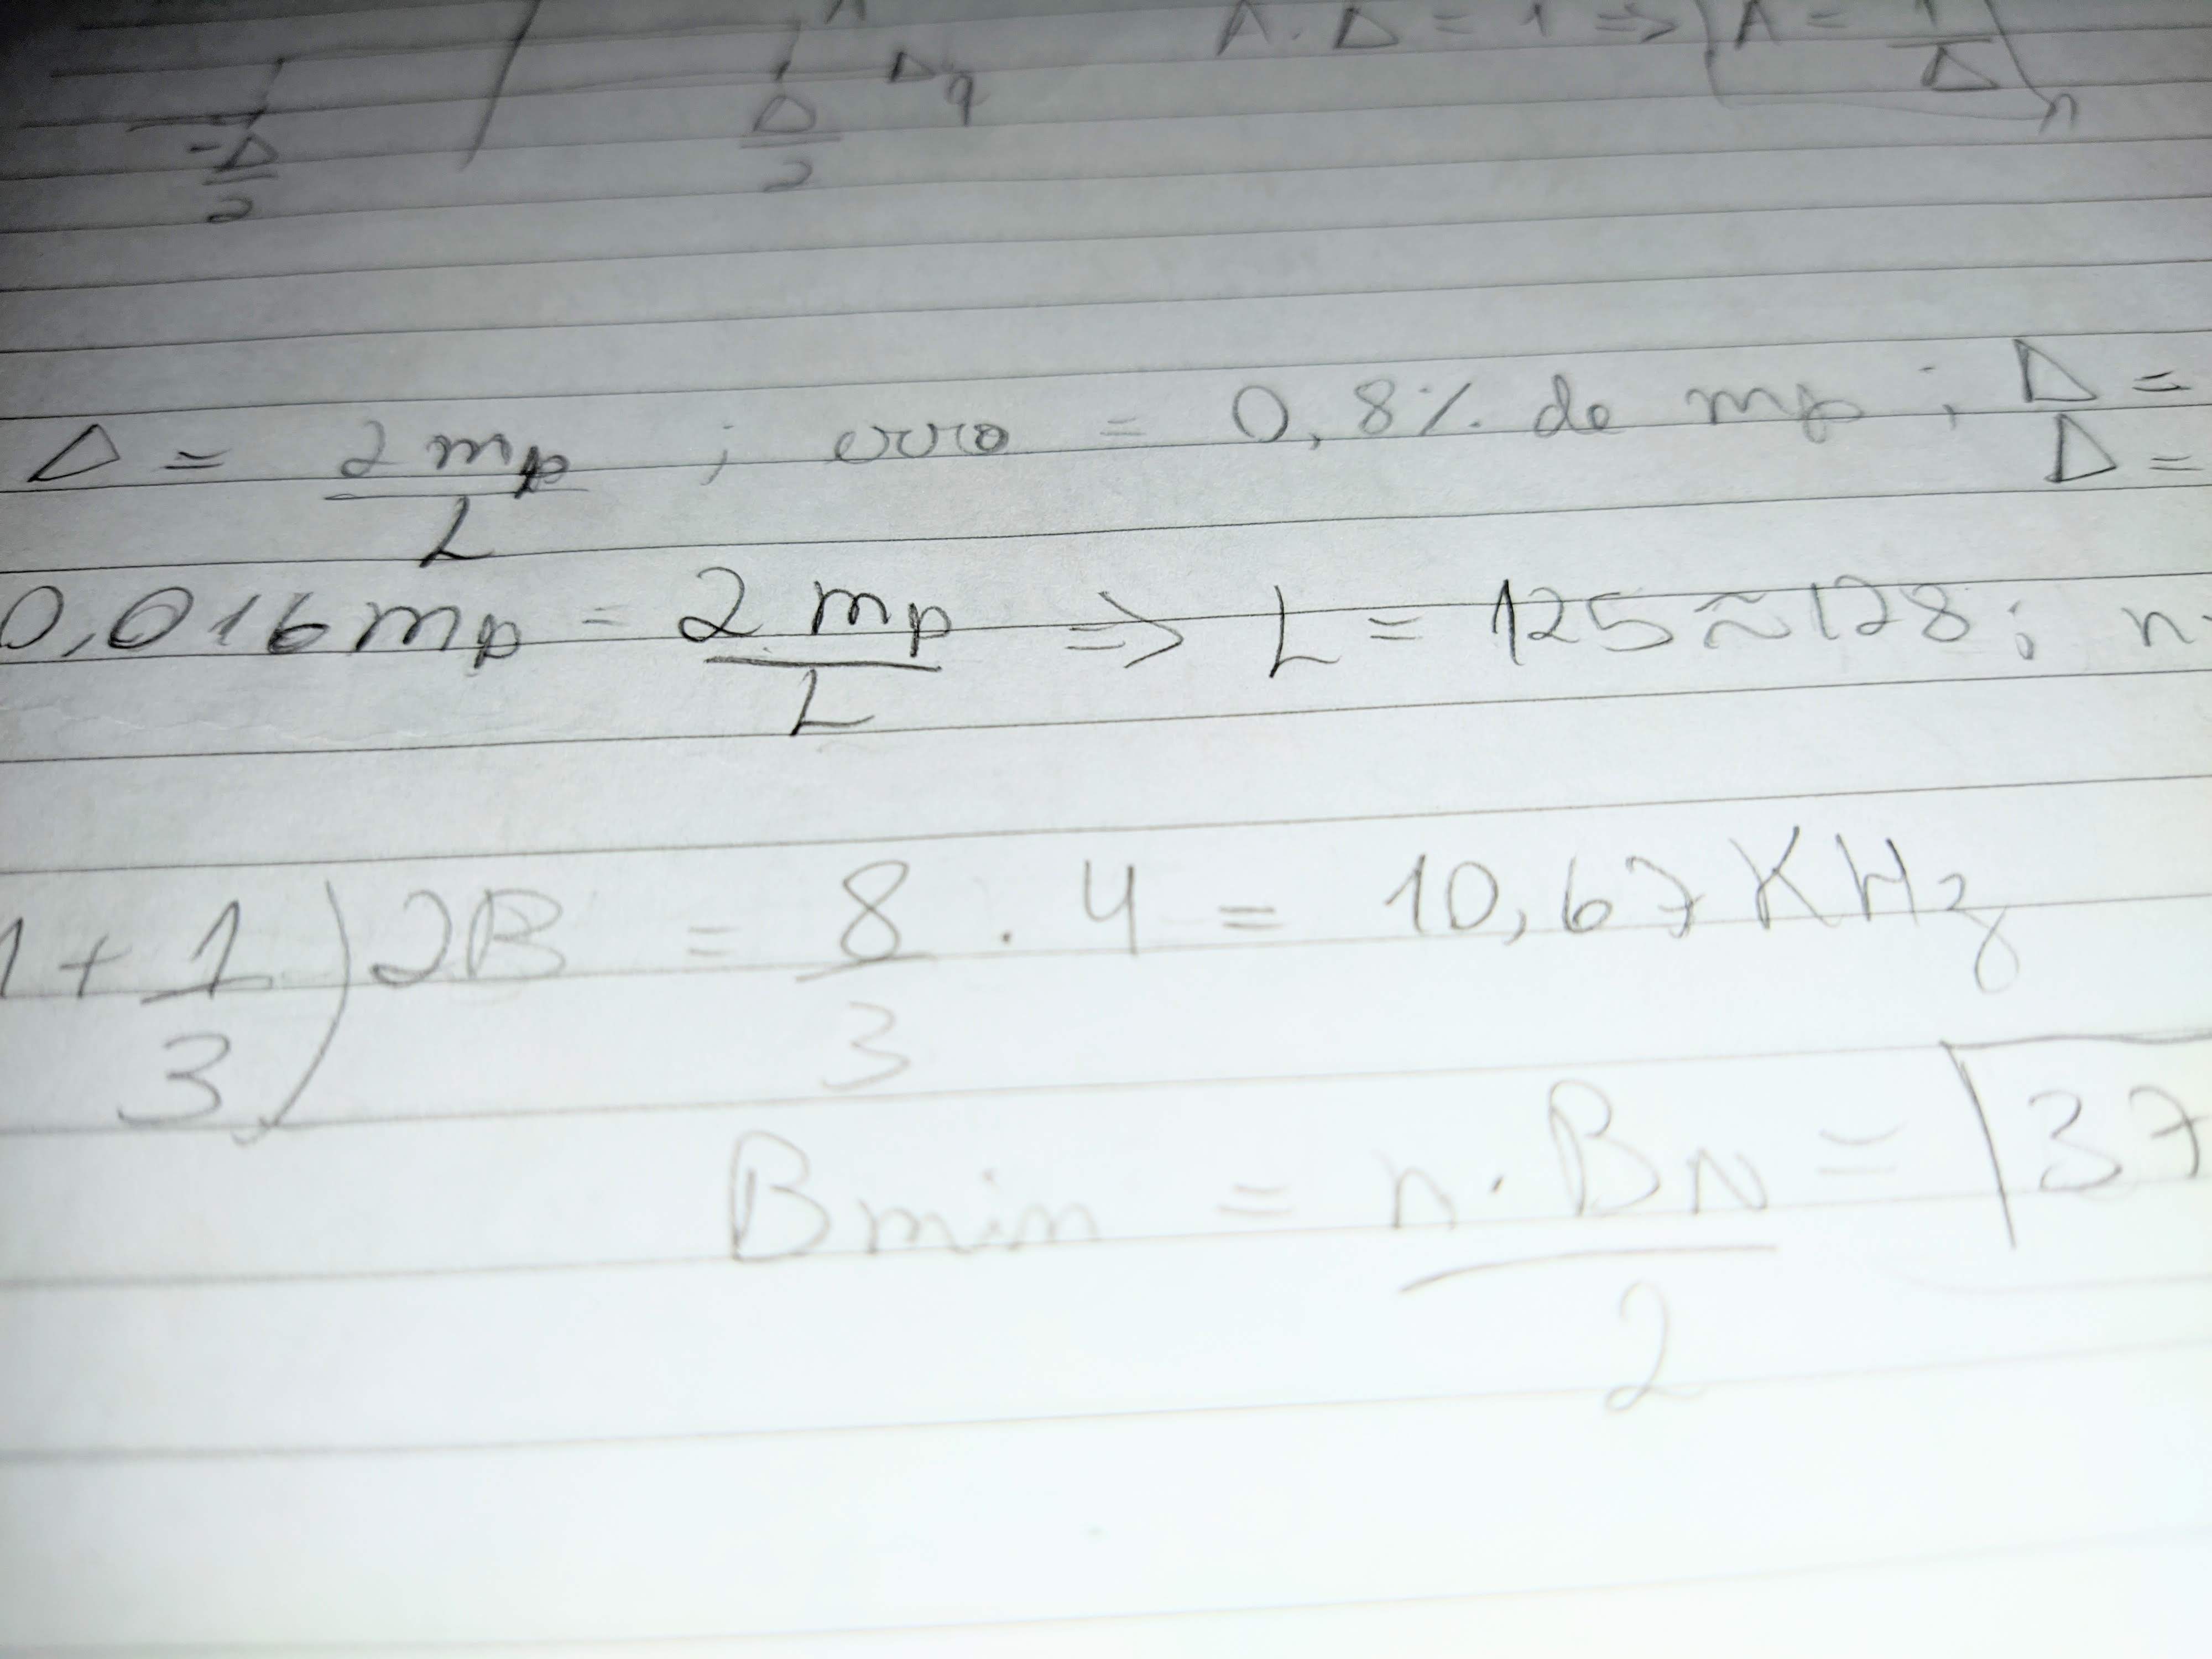 A. Δ = 1 => A = 1/Δ
-Δ/2 Δ/2 q
Δ = 2mp/L ; erro = 0,8% de mp ; Δ =
Δ =
0,016mp = 2mp/L => L = 125 ≈ 128 ; n
1 + 1/3) 2B = 8/3 . 4 = 10,67 KHz
Bmin = n.BN/2 = 37